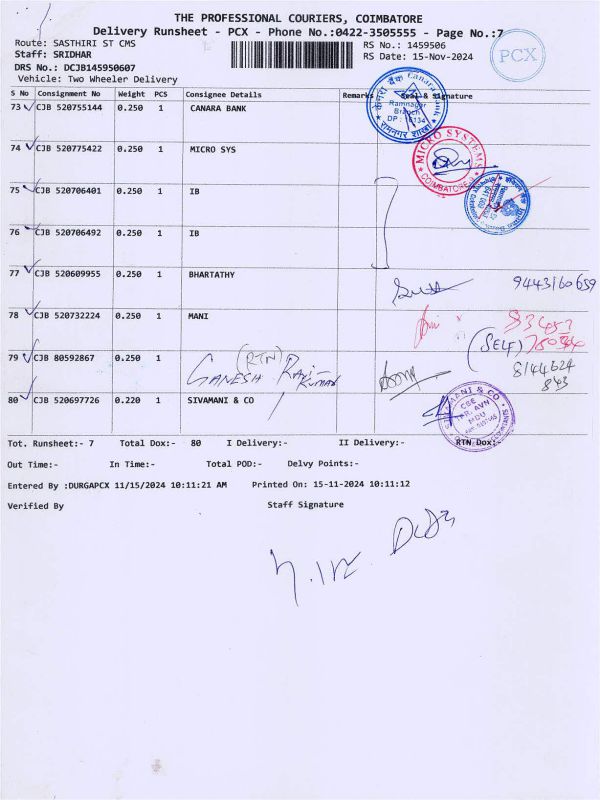 THE PROFESSIONAL COURIERS, COIMBATORE
Delivery Runsheet - PCX - Phone No.:0422-3505555 - Page No.:7
Route: SASTHIRI ST CMS RS No.: 1459506
Staff: SRIDHAR RS Date: 15-Nov-2024
PCX
DRS No.: DCJB145950607
Vehicle: Two Wheeler Delivery
S No Consignment No Weight PCS Consignee Details Remarks Seal & Signature
73 CJB 520755144 0.250 1 CANARA BANK
केनरा बैंक Canara Bank
Ramnagar
Branch
रामनगर शाखा
74 CJB 520775422 0.250 1 MICRO SYS
MICRO SYSTEMS
COIMBATORE
75 CJB 520706401 0.250 1 IB
76 CJB 520706492 0.250 1 IB
77 CJB 520609955 0.250 1 BHARTATHY 9443160659
78 CJB 520732224 0.250 1 MANI
(SELF)
79 CJB 80592867 0.250 1 (RTN) GANESH RAVI KUMAR
8144624
843
80 CJB 520697726 0.220 1 SIVAMANI & CO
Tot. Runsheet:- 7 Total Dox:- 80 I Delivery:- II Delivery:- RTN Dox:-
Out Time:- In Time:- Total POD:- Delvy Points:-
Entered By :DURGAPCX 11/15/2024 10:11:21 AM Printed On: 15-11-2024 10:11:12
Verified By Staff Signature